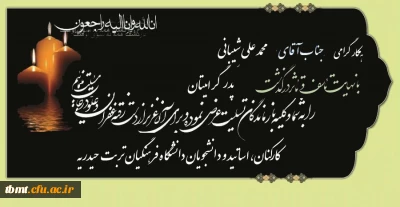 انا لله و انا الیه راجعون
همکار گرامی جناب آقای محمد علی شیبانی
با نهایت تاسف و تاثر درگذشت پدر گرامیتان
را به شما و کلیه بازماندگان تسلیت عرض نموده و برای آن عزیز از دست رفته غفران الهی
کارکنان، اساتید و دانشجویان دانشگاه فرهنگیان تربت حیدریه
tbmt.cfu.ac.ir